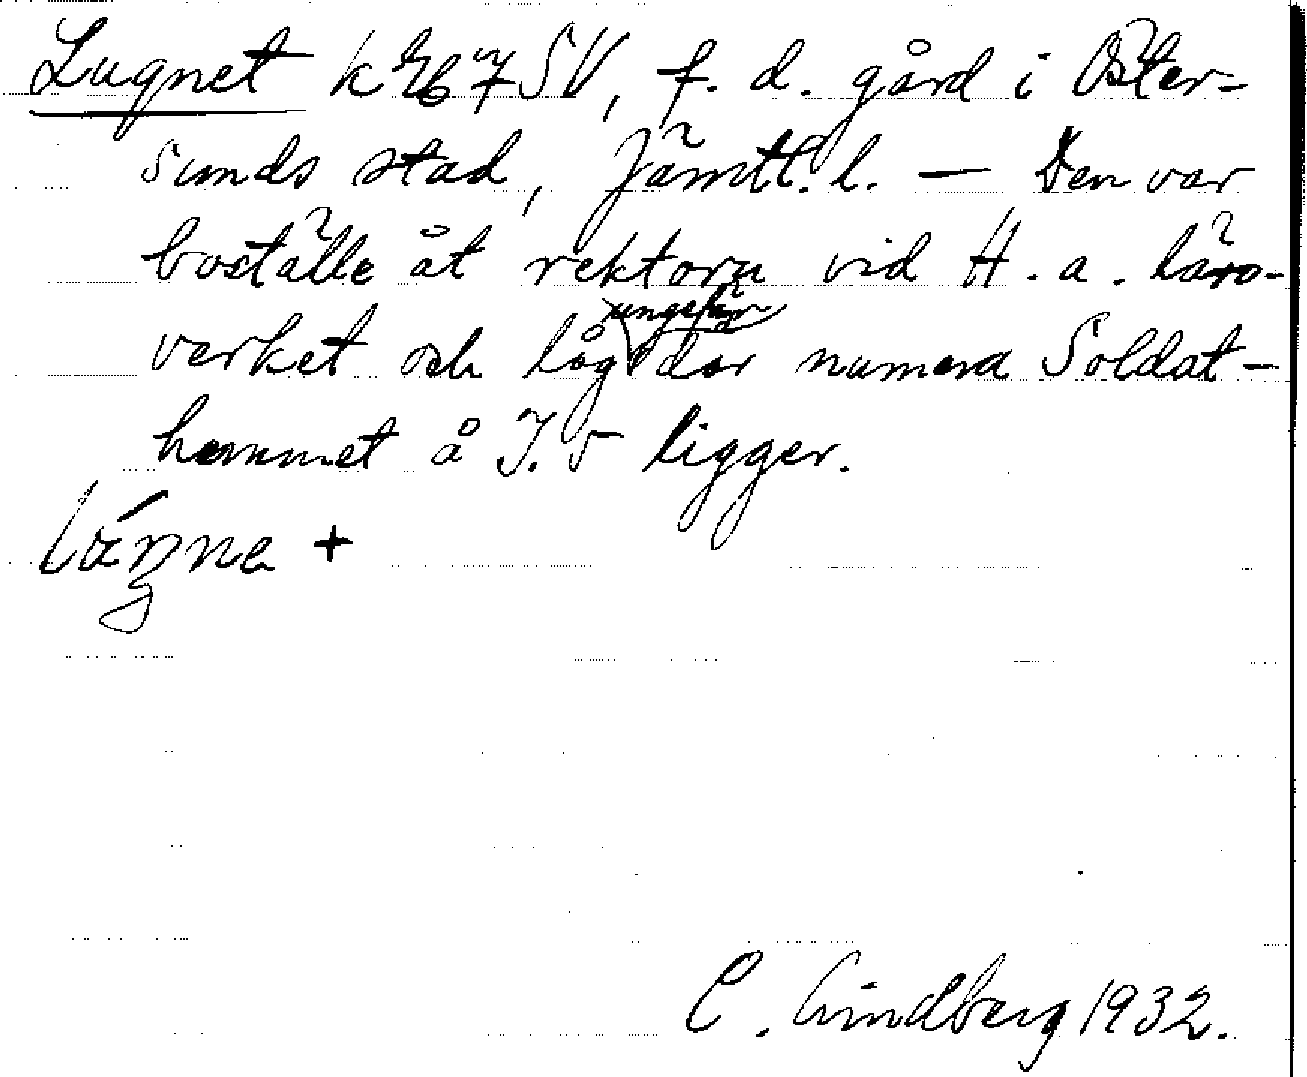 Lugnet k Eb 7 SV, f. d. gård i Öster-
sunds stad, Jämtl. l. — Den var
boställe åt rektorn vid H. a. läro-
verket och låg ungefär där numera Soldat-
hemmet å I. 5 ligger.
+
C. Lindberg 1932.